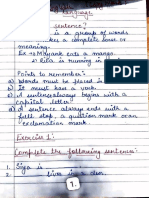 Language
sentence?
is a group of words
makes a complete sense or
meaning.
Ex → Mayank eats a mango.
→ Rita is running
Points to remember:
a) Words must be placed in
b) It must have a verb.
c) A sentence always begins with a
capital letter.
d) A sentence always ends with a
full stop, a question mark or an
exclamation mark
Exercise 1:
Complete the following sentences:
1. Siya is
2. live in a den.
1.